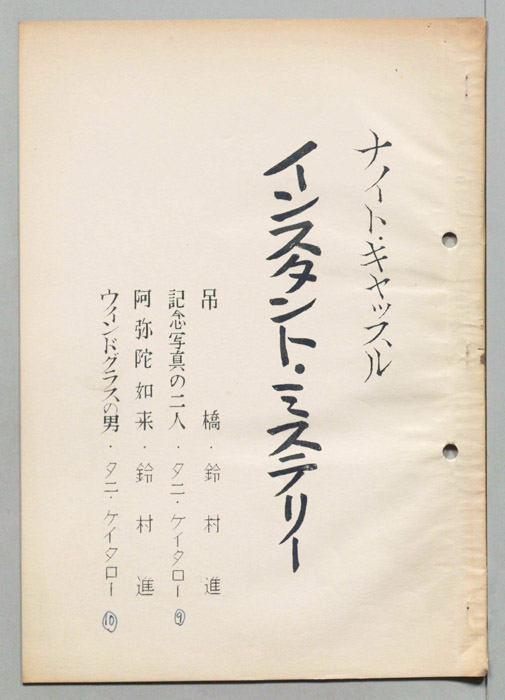 ナイト・キャッスル
インスタント・ミステリー
吊橋・鈴村進
記念写真の二人・タニ・ケイタロー ⑨
阿弥陀如来・鈴村進
ウィンドグラスの男・タニ・ケイタロー ⑩